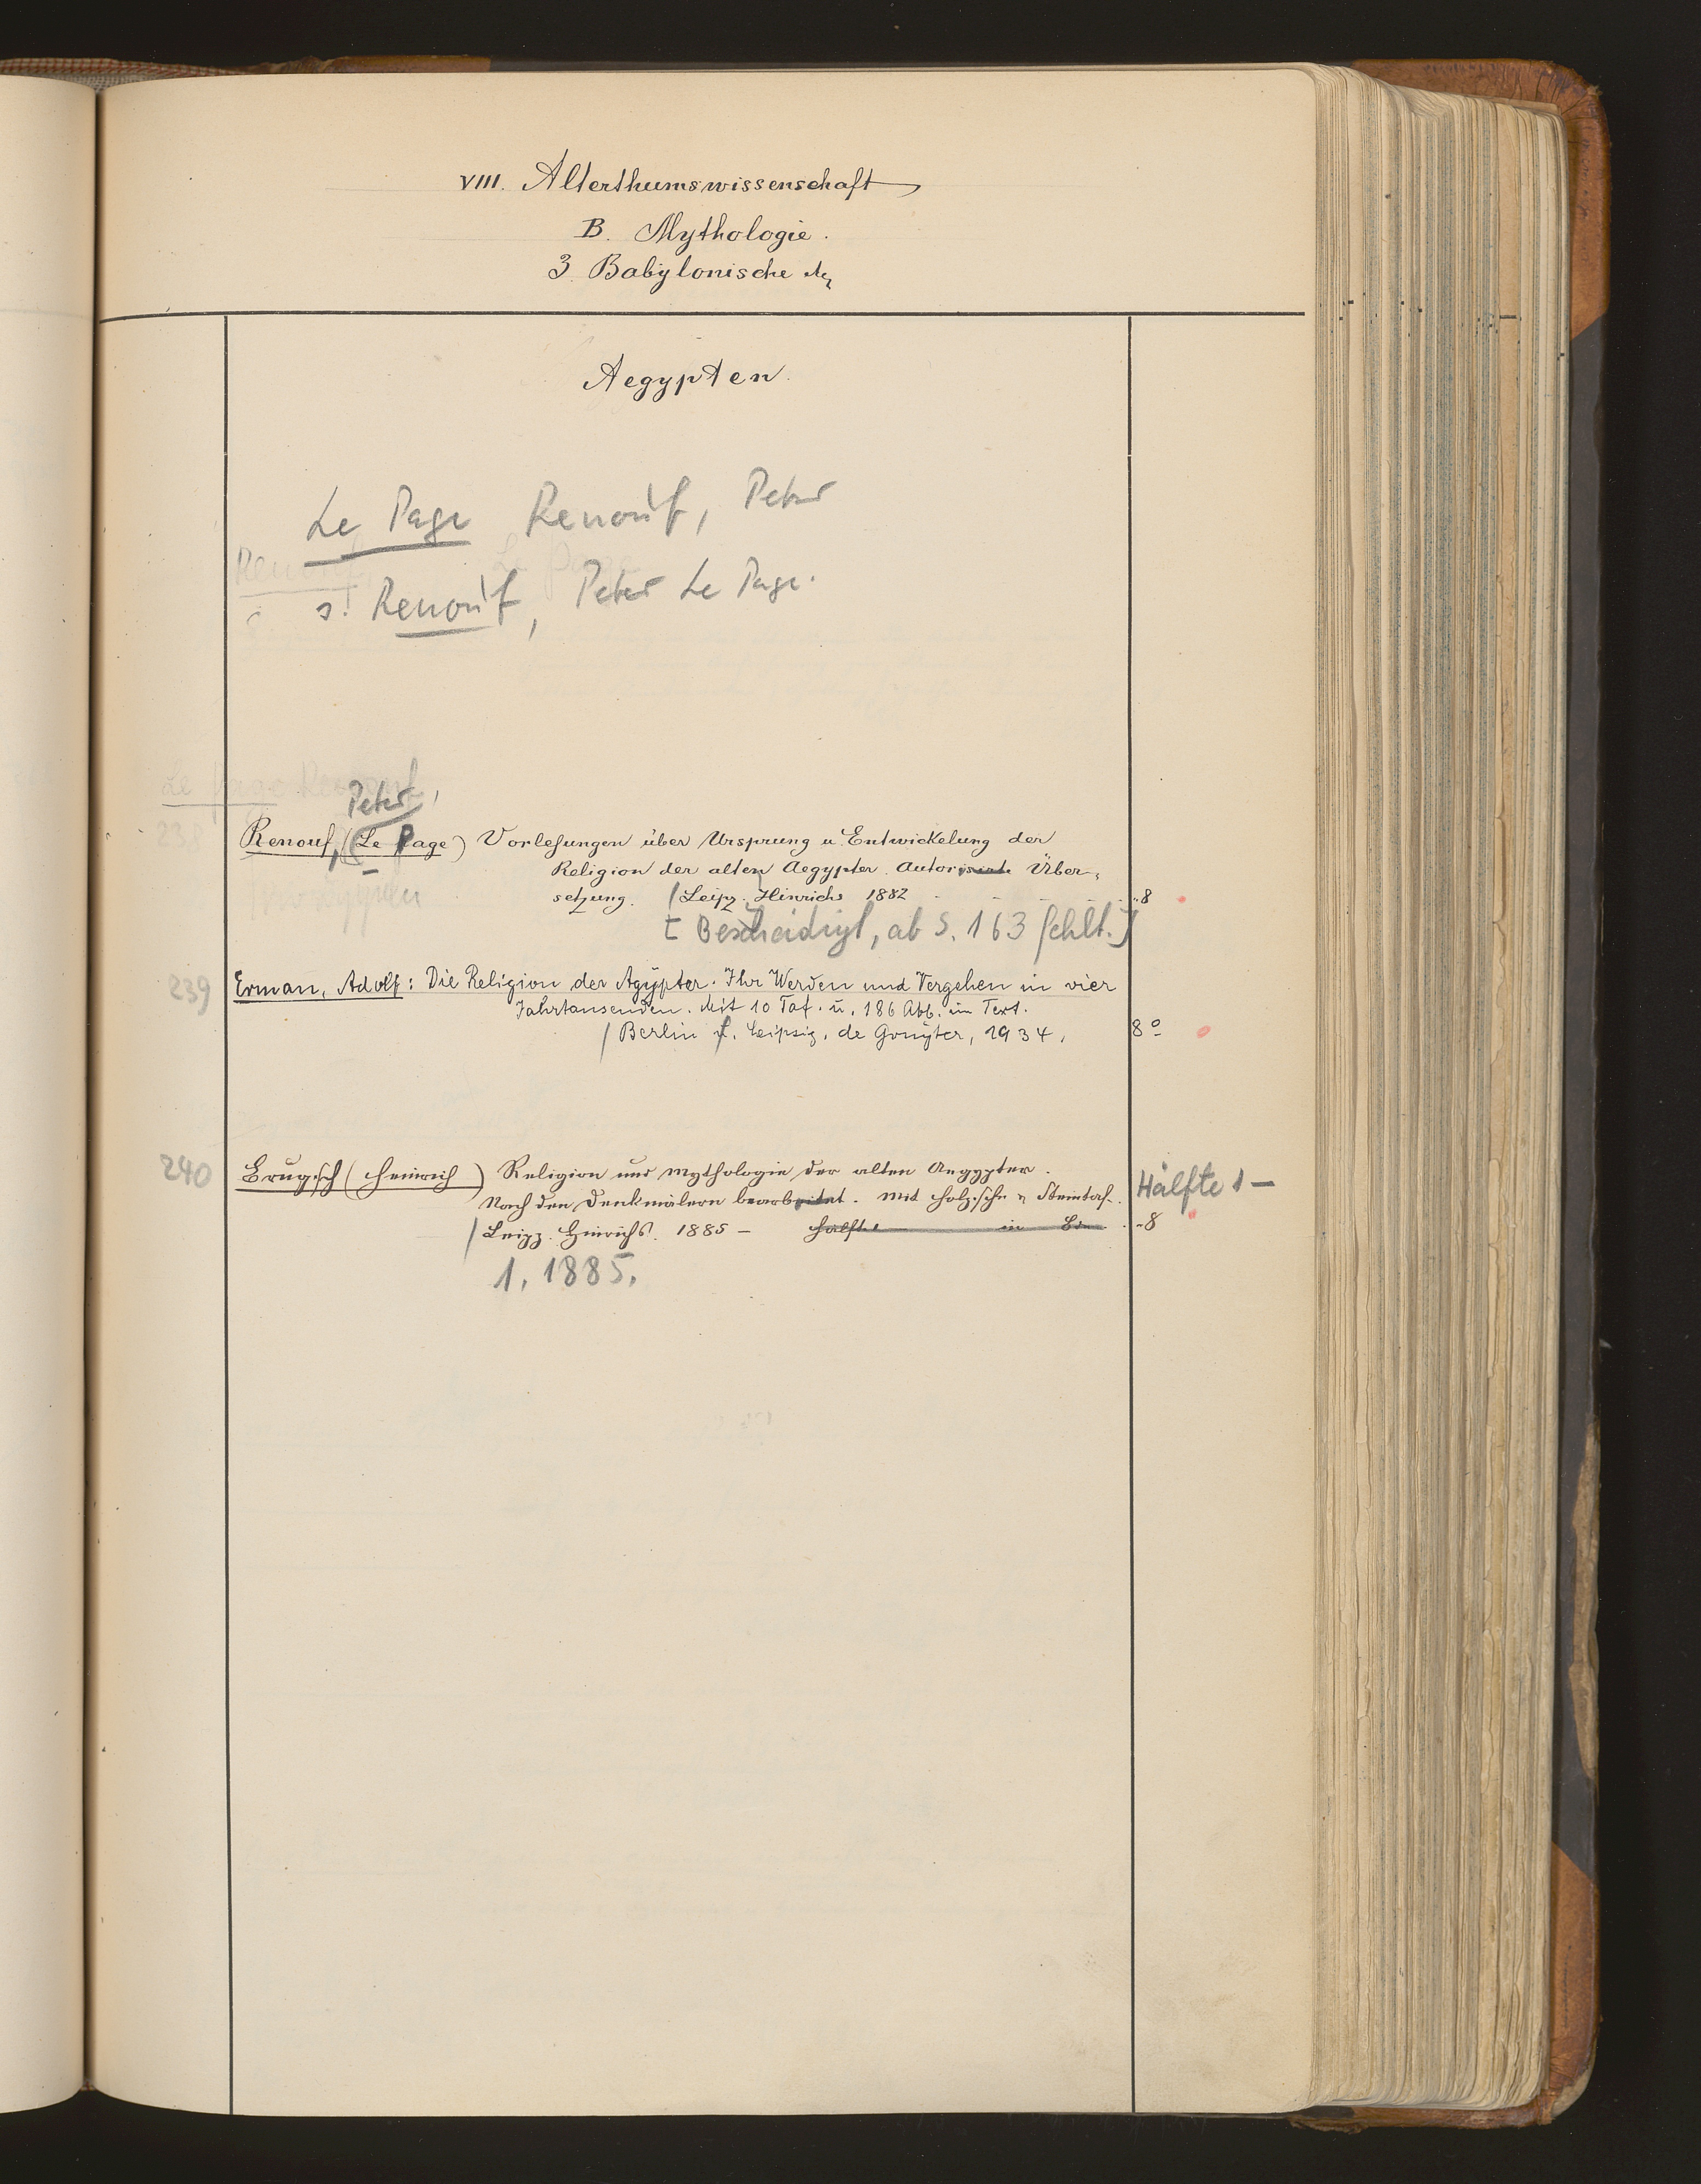 VIII. Alterthumswissenschaft
B. Mythologie.
3. Babylonische
Aegypten.
Le Page Renouf, Peter
Renouf, Le Page
s. Renouf, Peter Le Page.
Le Page Renouf
Peter,
238 Renouf, (Le Page) Vorlesungen über Ursprung u. Entwickelung der
Religion der alten Aegypter. Autorisirte Über-
setzung. / Leipz. Hinrichs 1882 - - - - - 8
[Beschädigt, ab S. 163 fehlt.]
239 Erman, Adolf: Die Religion der Ägypter. Ihr Werden und Vergehen in vier
Jahrtausenden. Mit 10 Taf. u. 186 Abb. im Text.
/ Berlin u. Leipzig, de Gruyter, 1934. 8°
240 Brugsch (Heinrich) Religion und Mythologie der alten Aegypter.
Hälfte 1 —
Nach den Denkmälern bearbeitet. Mit Holzschn. u. Steindaf.
/ Leipz. Hinrichs. 1885 — Hälfte in Bd. 8
1. 1885.